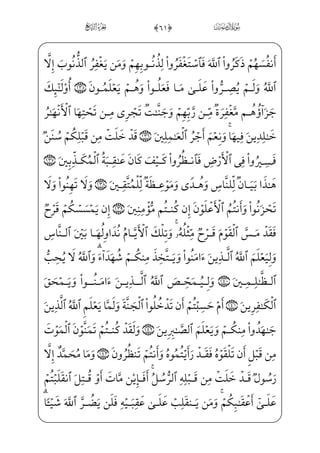 سُورَةُ آلِ عِمْرَانَ ﴿٦١﴾ الجُزْءُ الرَّابِعُ
أَنفُسَهُمْ ذَكَرُوا۟ ٱللَّهَ فَٱسْتَغْفَرُوا۟ لِذُنُوبِهِمْ وَمَن يَغْفِرُ ٱلذُّنُوبَ إِلَّا
ٱللَّهُ وَلَمْ يُصِرُّوا۟ عَلَىٰ مَا فَعَلُوا۟ وَهُمْ يَعْلَمُونَ ١٣٥ أُو۟لَـٰٓئِكَ
جَزَآؤُهُم مَّغْفِرَةٌ مِّن رَّبِّهِمْ وَجَنَّـٰتٌ تَجْرِى مِن تَحْتِهَا ٱلْأَنْهَـٰرُ
خَـٰلِدِينَ فِيهَا ۚ وَنِعْمَ أَجْرُ ٱلْعَـٰمِلِينَ ١٣٦ قَدْ خَلَتْ مِن قَبْلِكُمْ سُنَنٌ
فَسِيرُوا۟ فِى ٱلْأَرْضِ فَٱنظُرُوا۟ كَيْفَ كَانَ عَـٰقِبَةُ ٱلْمُكَذِّبِينَ ١٣٧
هَـٰذَا بَيَانٌ لِّلنَّاسِ وَهُدًى وَمَوْعِظَةٌ لِّلْمُتَّقِينَ ١٣٨ وَلَا تَهِنُوا۟ وَلَا
تَحْزَنُوا۟ وَأَنتُمُ ٱلْأَعْلَوْنَ إِن كُنتُم مُّؤْمِنِينَ ١٣٩ إِن يَمْسَسْكُمْ قَرْحٌ
فَقَدْ مَسَّ ٱلْقَوْمَ قَرْحٌ مِّثْلُهُۥ ۚ وَتِلْكَ ٱلْأَيَّامُ نُدَاوِلُهَا بَيْنَ ٱلنَّاسِ
وَلِيَعْلَمَ ٱللَّهُ ٱلَّذِينَ ءَامَنُوا۟ وَيَتَّخِذَ مِنكُمْ شُهَدَآءَ ۗ وَٱللَّهُ لَا يُحِبُّ
ٱلظَّـٰلِمِينَ ١٤٠ وَلِيُمَحِّصَ ٱللَّهُ ٱلَّذِينَ ءَامَنُوا۟ وَيَمْحَقَ
ٱلْكَـٰفِرِينَ ١٤١ أَمْ حَسِبْتُمْ أَن تَدْخُلُوا۟ ٱلْجَنَّةَ وَلَمَّا يَعْلَمِ ٱللَّهُ ٱلَّذِينَ
جَـٰهَدُوا۟ مِنكُمْ وَيَعْلَمَ ٱلصَّـٰبِرِينَ ١٤٢ وَلَقَدْ كُنتُمْ تَمَنَّوْنَ ٱلْمَوْتَ
مِن قَبْلِ أَن تَلْقَوْهُ فَقَدْ رَأَيْتُمُوهُ وَأَنتُمْ تَنظُرُونَ ١٤٣ وَمَا مُحَمَّدٌ إِلَّا
رَسُولٌ قَدْ خَلَتْ مِن قَبْلِهِ ٱلرُّسُلُ ۚ أَفَإِي۟ن مَّاتَ أَوْ قُتِلَ ٱنقَلَبْتُمْ
عَلَىٰٓ أَعْقَـٰبِكُمْ ۚ وَمَن يَنقَلِبْ عَلَىٰ عَقِبَيْهِ فَلَن يَضُرَّ ٱللَّهَ شَيْـًٔا ۗ